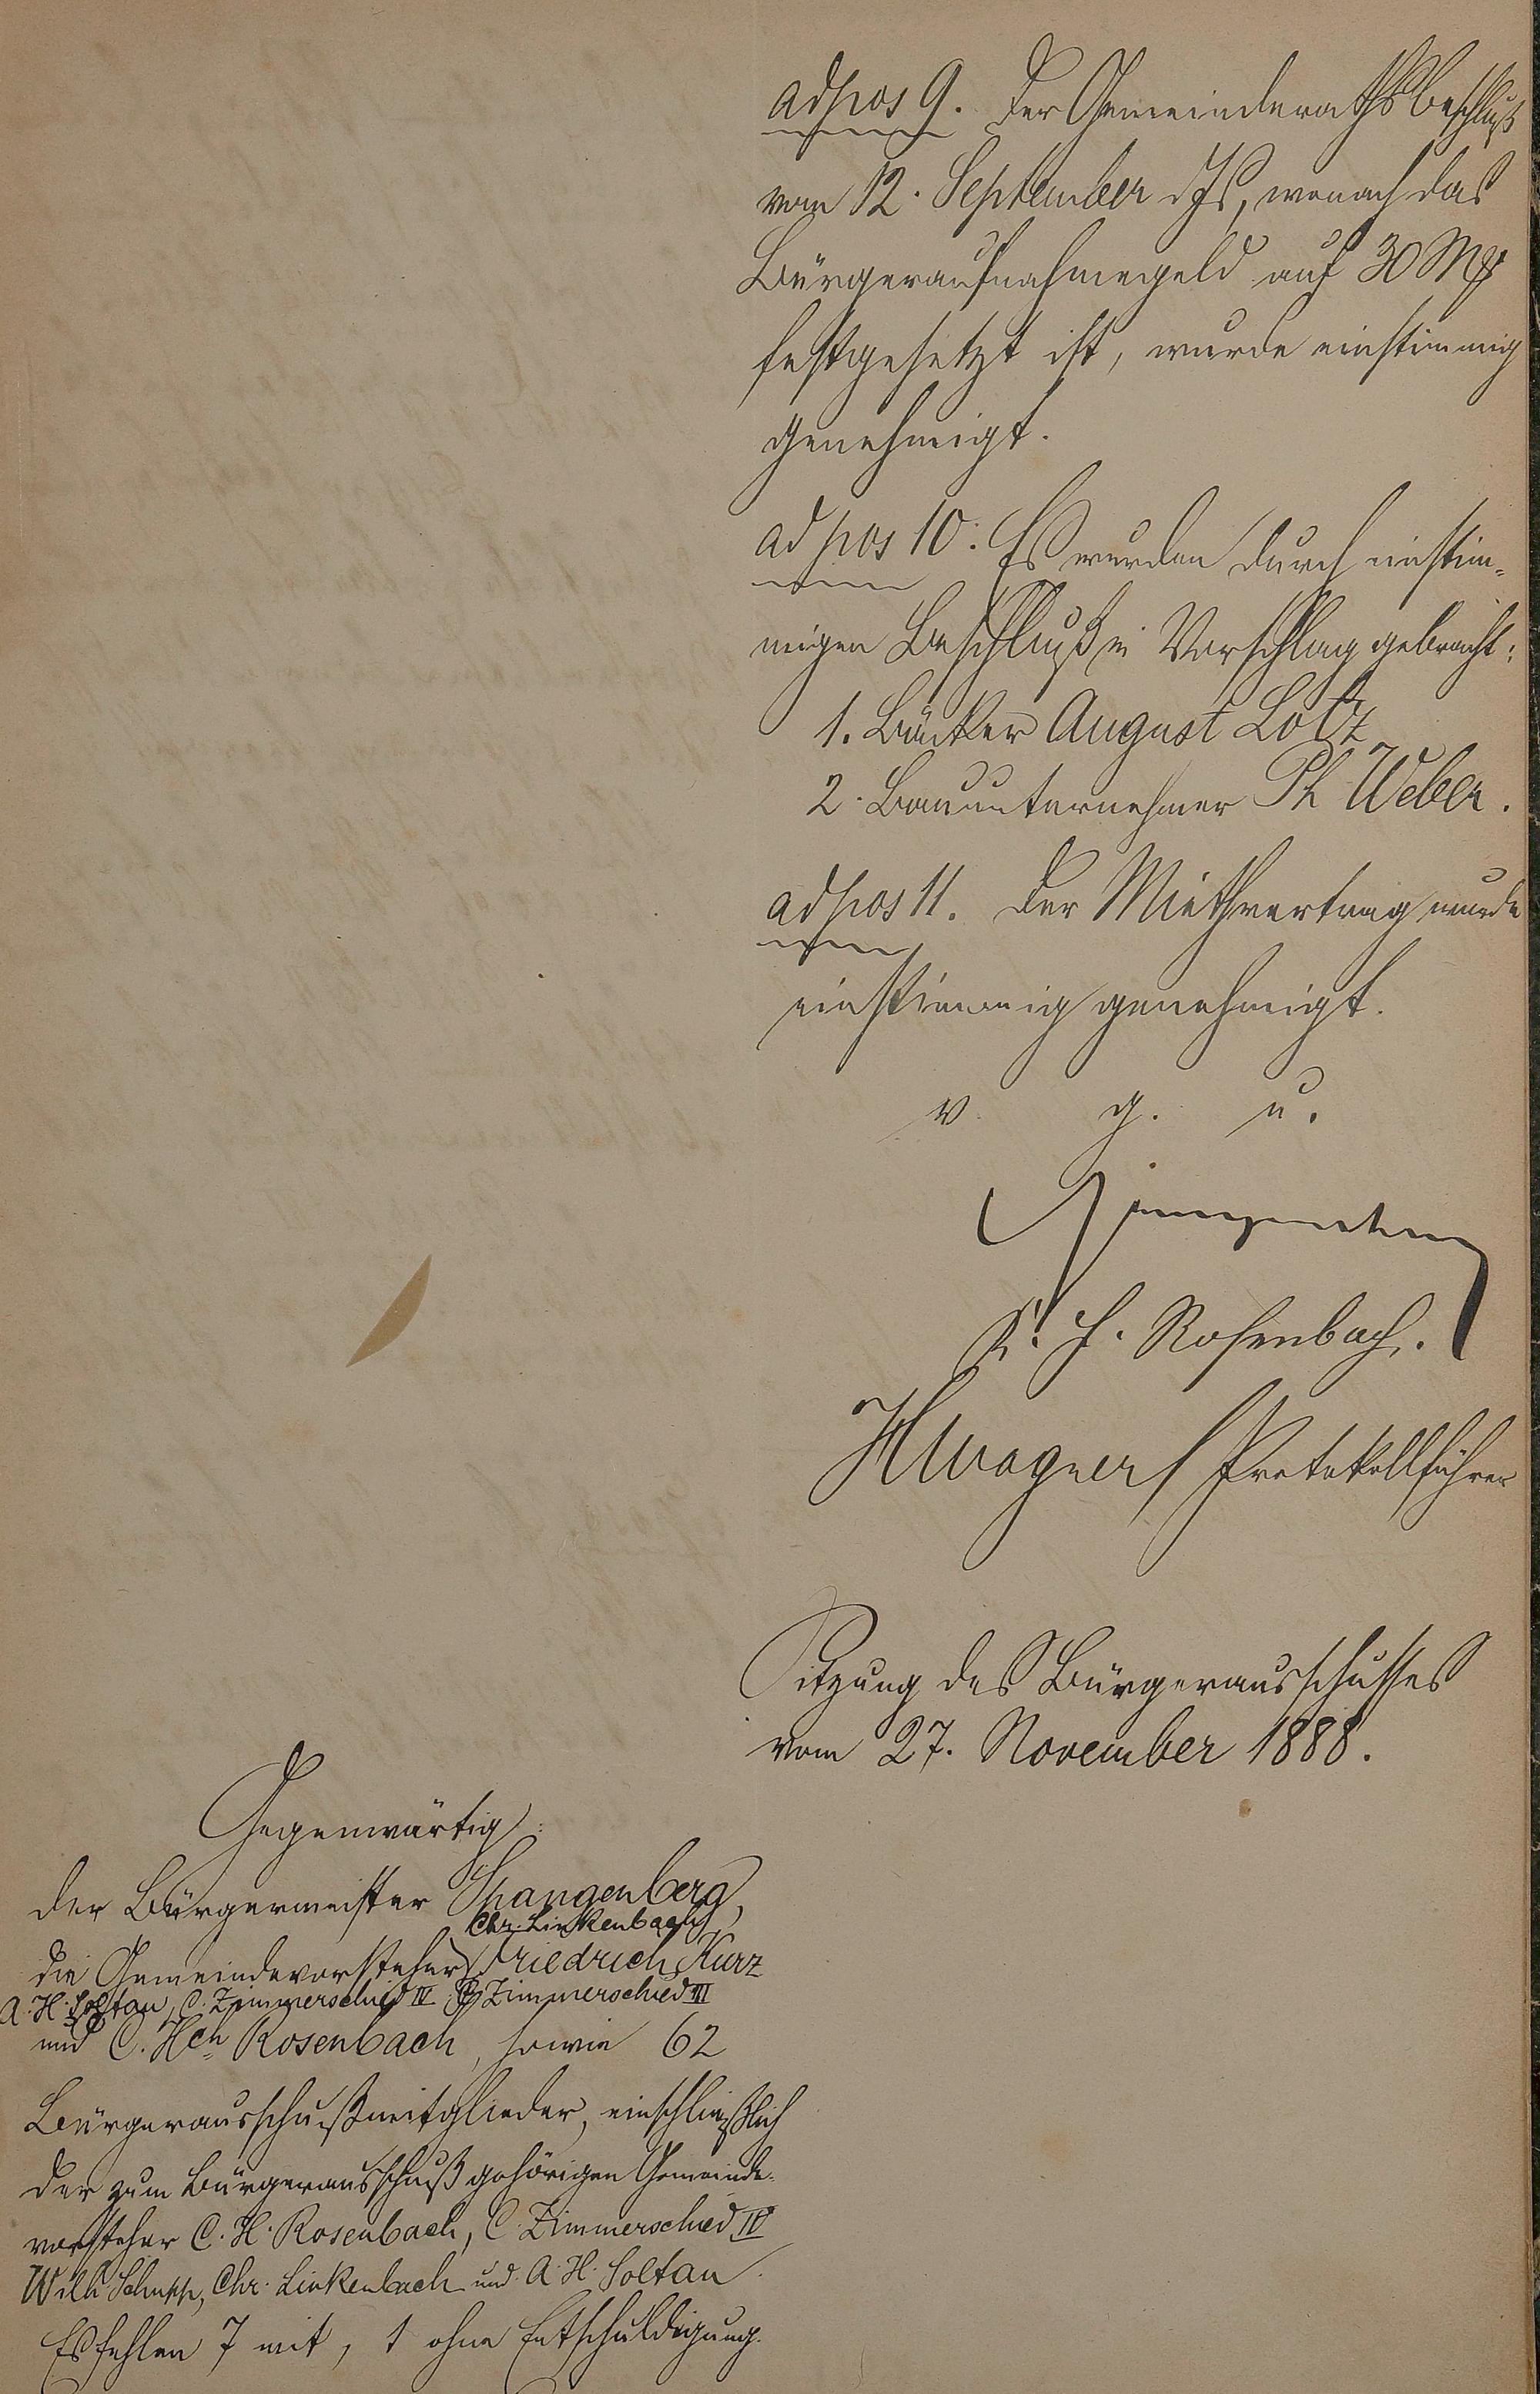 ad pos 9. Der Gemeinderathsbeschluß
vom 12. September d Js, wonach das
Bürgeraufnahmegeld auf 30 Mk
festgesetzt ist, wurde einstimmig
genehmigt.
ad pos 10. Es wurden durch einstim-
migen Beschluß in Vorschlag gebracht:
1. Bäcker August Lotz
2. Bauunternehmer Ph Weber.
ad pos 11. Der Miethvertrag wurde
einstimmig genehmigt.
v. g. u.
Spangenberg
C. H. Rosenbach.
HWagner Protokollführer
Sitzung des Bürgerausschusses
vom 27. November 1888.
Gegenwärtig:
der Bürgermeister Spangenberg,
Chr. Linkenbach
die Gemeindevorsteher Friedrich Kurz
A. H. Soltau, C. Zimmerschied IV Zimmerschied III
und C. Hch Rosenbach, sowie 62
Bürgerausschußmitglieder, einschließlich
der zum Bürgerausschuß gehörigen Gemeinde-
vorsteher C. H. Rosenbach, C. Zimmerschied IV
Wilh Schupp, Chr. Linkenbach und A. H. Soltau.
Es fehlen 7 mit, 1 ohne Entschuldigung.